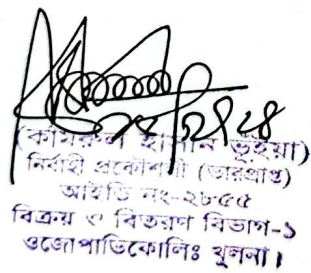 (কামরুল হাসান ভূইয়া)
নির্বাহী প্রকৌশলী (ভারপ্রাপ্ত)
আইডি নং-২৮৫৫
বিক্রয় ও বিতরণ বিভাগ-১
ওজোপাডিকোলিঃ খুলনা।